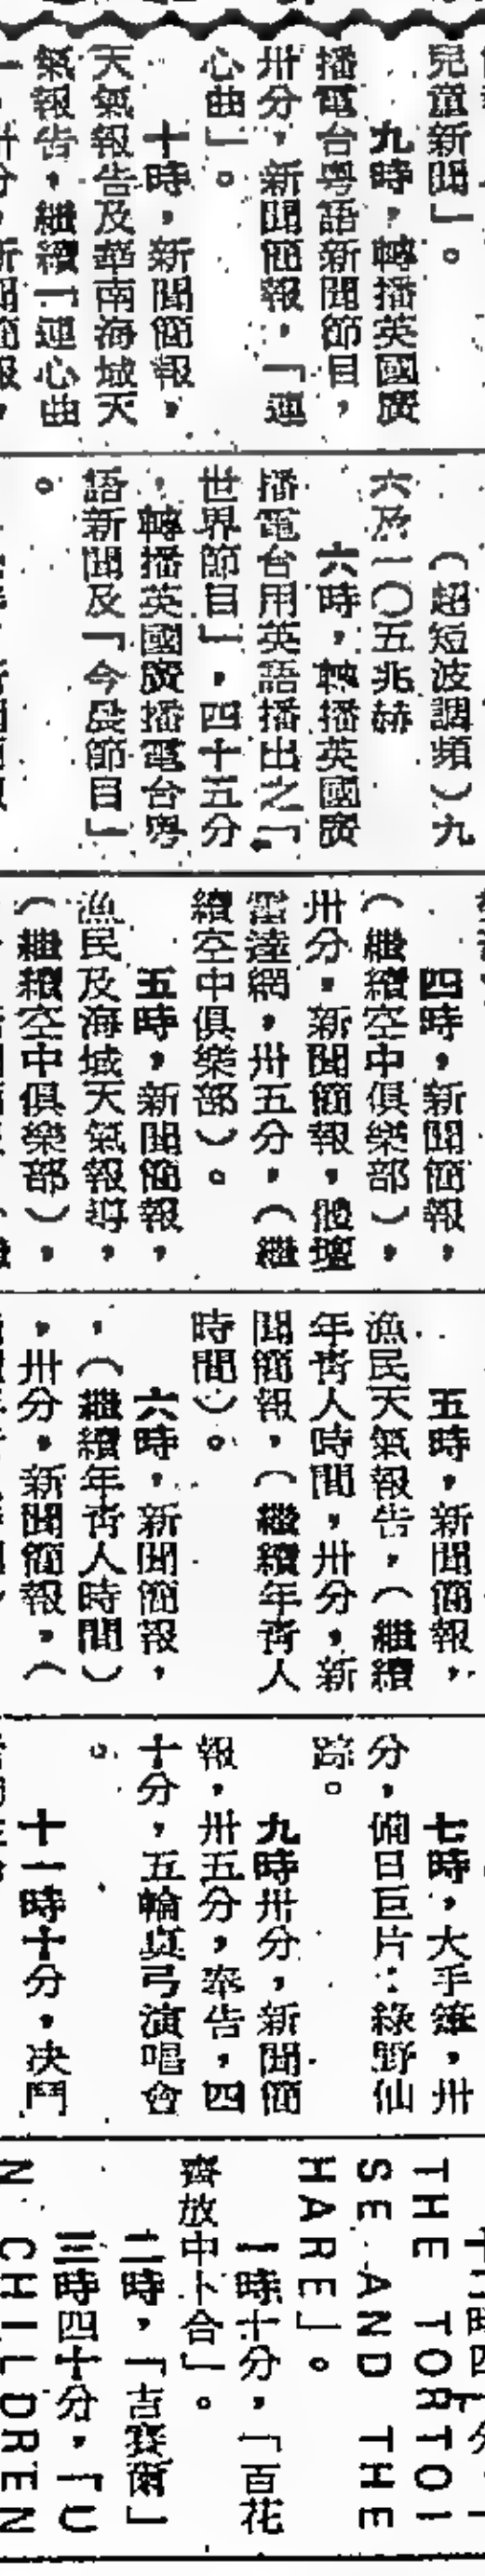 兒童新聞」。
九時，轉播英國廣
播電台粵語新聞節目，
卅分，新聞簡報，「連
心曲」。
十時，新聞簡報，
天氣報告及華南海域天
氣報告，繼續「連心曲
（超短波調頻）九
六及一〇五兆赫
六時，轉播英國廣
播電台用英語播出之「
世界節目」，四十五分
，轉播英國廣播電台粵
語新聞及「今晨節目」
。
四時，新聞簡報，
（繼續空中俱樂部），
卅分，新聞簡報，體壇
雷達網，卅五分，（繼
續空中俱樂部）。
五時，新聞簡報，
漁民及海域天氣報導，
（繼續空中俱樂部），
五時，新聞簡報，
漁民天氣報告，（繼續
年青人時間，卅分，新
聞簡報，（繼續年青人
時間）。
六時，新聞簡報，
，（繼續年青人時間）
，卅分，新聞簡報，（
七時，大手筆，卅
分，備日巨片：綠野仙
踪。
九時卅分，新聞簡
報，卅五分，奉告，四
十分，五輪真弓演唱會
。
十一時十分，决鬥
THE TORTOI
SE AND THE
HARE」。
一時十分，「百花
齊放中卜合」。
二時，「吉賽爾」
三時四十分，「U
N CHILDREN